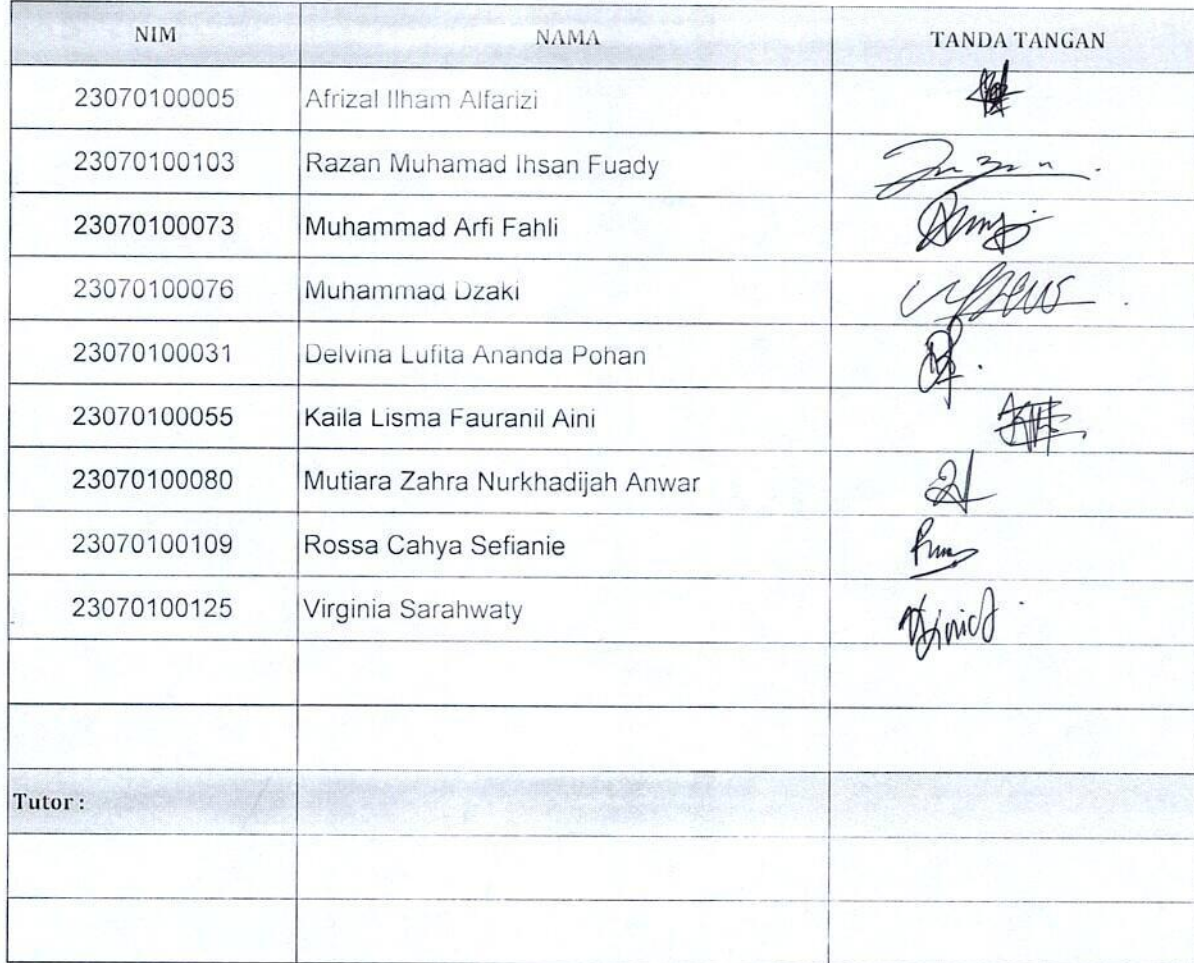 NIM NAMA TANDA TANGAN
23070100005 Afrizal Ilham Alfarizi
23070100103 Razan Muhamad Ihsan Fuady
23070100073 Muhammad Arfi Fahli
23070100076 Muhammad Dzaki
23070100031 Delvina Lufita Ananda Pohan
23070100055 Kaila Lisma Fauranil Aini
23070100080 Mutiara Zahra Nurkhadijah Anwar
23070100109 Rossa Cahya Sefianie
23070100125 Virginia Sarahwaty
Tutor :